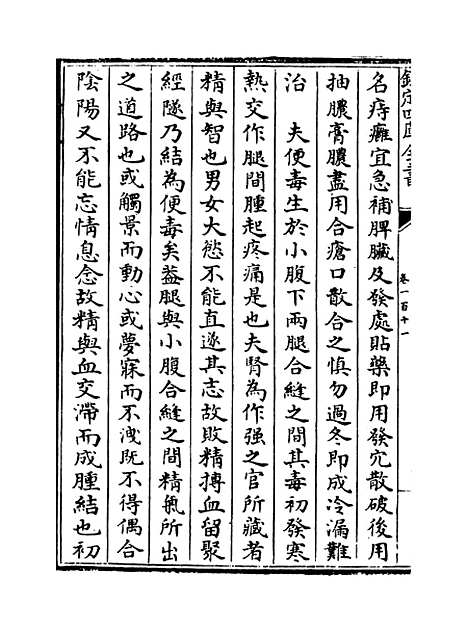 欽定四庫全書
卷一百十一
名痔癰宜急補脾臟及發處貼藥即用發穴散破後用
抽膿膏膿盡用合瘡口散合之慎勿過冬即成冷漏難
治　夫便毒生於小腹下兩腿合縫之間其毒初發寒
熱交作腿間腫起疼痛是也夫腎為作强之官所藏者
精與智也男女大慾不能直遂其志故敗精搏血留聚
經隧乃結為便毒矣葢腿與小腹合縫之間精氣所出
之道路也或觸景而動心或夢寐而不洩既不得偶合
陰陽又不能忘情息念故精與血交滯而成腫結也初